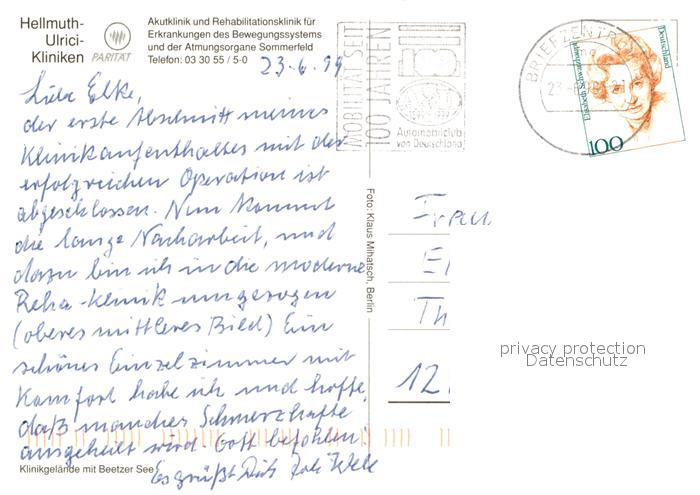 Hellmuth-
Ulrici-
Kliniken PARITÄT
Akutklinik und Rehabilitationsklinik für
Erkrankungen des Bewegungssystems
und der Atmungsorgane Sommerfeld
Telefon: 03 30 55 / 5-0
23.6.99
Liebe Elke,
der erste Abschnitt meines
Klinikaufenthaltes mit der
erfolgreichen Operation ist
abgeschlossen. Nun kommt
die lange Nacharbeit, und
dazu bin ich in die moderne
Reha-Klinik umgezogen
(oberes mittleres Bild) Ein
schönes Einzelzimmer mit
Komfort habe ich und hoffe,
daß manches Schmerzhafte
ausgeheilt wird. Gott befohlen!
Es grüßt Dich
Klinikgelände mit Beetzer See
Foto: Klaus Mihatsch, Berlin
MOBILITÄT SEIT
100 JAHREN
Automobilclub
von Deutschland
BRIEFZENTRUM
Deutschland
Elisabeth Schwarzhaupt
100
Frau
El
Th
12
privacy protection
Datenschutz